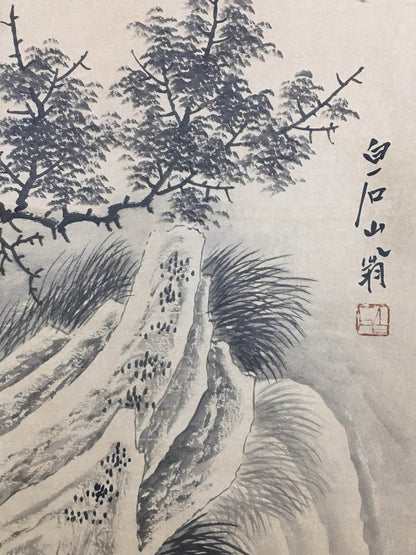 白石山翁